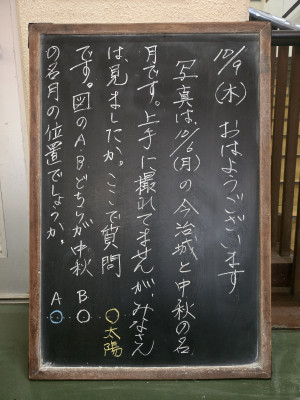 10/9(木) おはようございます
写真は、10/6(月)の今治城と中秋の名
月です。上手に撮れてませんが、みなさん
は、見ましたか。ここで質問
です。図のA、B、どちらが中秋
の名月の位置でしょうか。
太陽
B
A